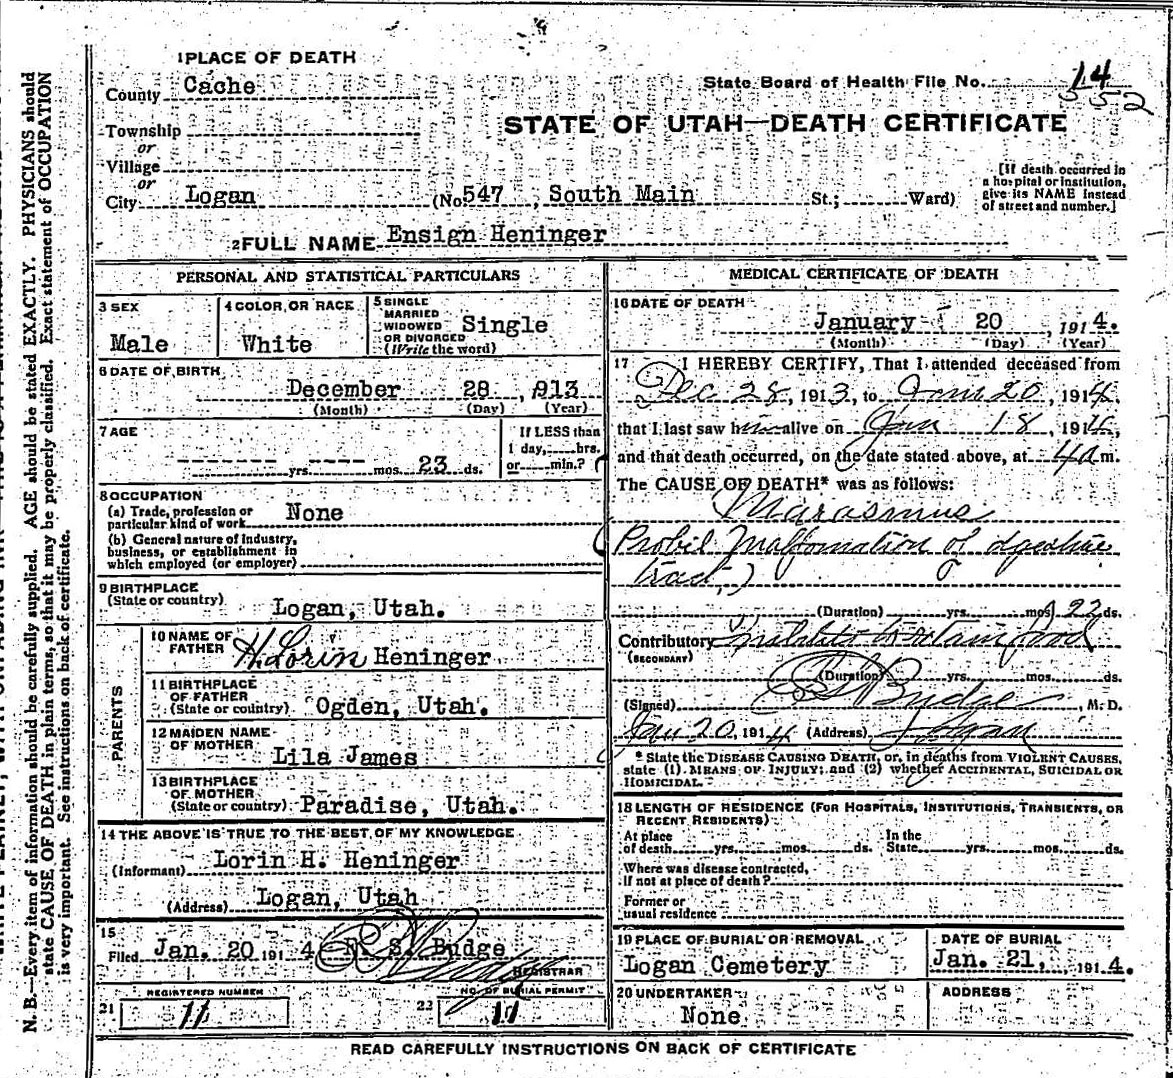 1 PLACE OF DEATH
County Cache
State Board of Health File No. 14
552
Township
or
Village
or
City Logan (No. 547, South Main St.; Ward)
STATE OF UTAH—DEATH CERTIFICATE
[If death occurred in a hospital or institution, give its NAME instead of street and number.]
2 FULL NAME Ensign Heninger
PERSONAL AND STATISTICAL PARTICULARS
3 SEX
Male
4 COLOR OR RACE
White
5 SINGLE
MARRIED
WIDOWED
OR DIVORCED
(Write the word)
Single
6 DATE OF BIRTH
December 28, 1913
(Month) (Day) (Year)
7 AGE
yrs. mos. 23 ds.
If LESS than
1 day, hrs.
or min.?
8 OCCUPATION
(a) Trade, profession or
particular kind of work None
(b) General nature of industry,
business, or establishment in
which employed (or employer)
9 BIRTHPLACE
(State or country) Logan, Utah.
PARENTS
10 NAME OF
FATHER H. Lorin Heninger
11 BIRTHPLACE
OF FATHER
(State or country) Ogden, Utah.
12 MAIDEN NAME
OF MOTHER Lila James
13 BIRTHPLACE
OF MOTHER
(State or country) Paradise, Utah.
14 THE ABOVE IS TRUE TO THE BEST OF MY KNOWLEDGE
(Informant) Lorin H. Heninger
(Address) Logan, Utah
15
Filed Jan. 20 191 4 R. S. Budge
REGISTRAR
REGISTERED NUMBER
21 11
NO. OF BURIAL PERMIT
22 11
MEDICAL CERTIFICATE OF DEATH
16 DATE OF DEATH
January 20, 1914.
(Month) (Day) (Year)
17 I HEREBY CERTIFY, That I attended deceased from
Dec 28, 1913, to Jan 20, 1914.
that I last saw him alive on Jan 18, 1914,
and that death occurred, on the date stated above, at 4 a m.
The CAUSE OF DEATH* was as follows:
Marasmus
(Probil Malfomation of dgestive
tract)
(Duration) yrs. mos. 22 ds.
Contributory to retain food
(SECONDARY)
(Duration) yrs. mos. ds.
(Signed) Budge, M. D.
Jan 20, 1914 (Address) Logan
* State the DISEASE CAUSING DEATH, or, in deaths from VIOLENT CAUSES,
state (1) MEANS OF INJURY; and (2) whether ACCIDENTAL, SUICIDAL OR
HOMICIDAL.
18 LENGTH OF RESIDENCE (FOR HOSPITALS, INSTITUTIONS, TRANSIENTS, OR
RECENT RESIDENTS)
At place In the
of death yrs. mos. ds. State yrs. mos. ds.
Where was disease contracted,
if not at place of death?
Former or
usual residence
19 PLACE OF BURIAL OR REMOVAL
Logan Cemetery
DATE OF BURIAL
Jan. 21, 1914.
20 UNDERTAKER
None
ADDRESS
READ CAREFULLY INSTRUCTIONS ON BACK OF CERTIFICATE
N. B.—Every item of information should be carefully supplied. AGE should be stated EXACTLY. PHYSICIANS should
state CAUSE OF DEATH in plain terms, so that it may be properly classified. Exact statement of OCCUPATION
is very important. See instructions on back of certificate.